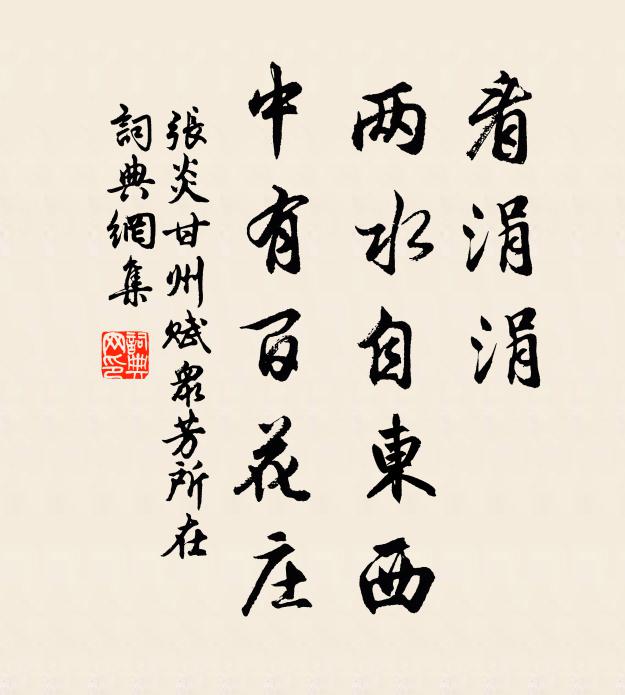 看涓涓
两水自東西
中有百花庄
張炎甘州賦衆芳所在
詞典網集
詞典网印